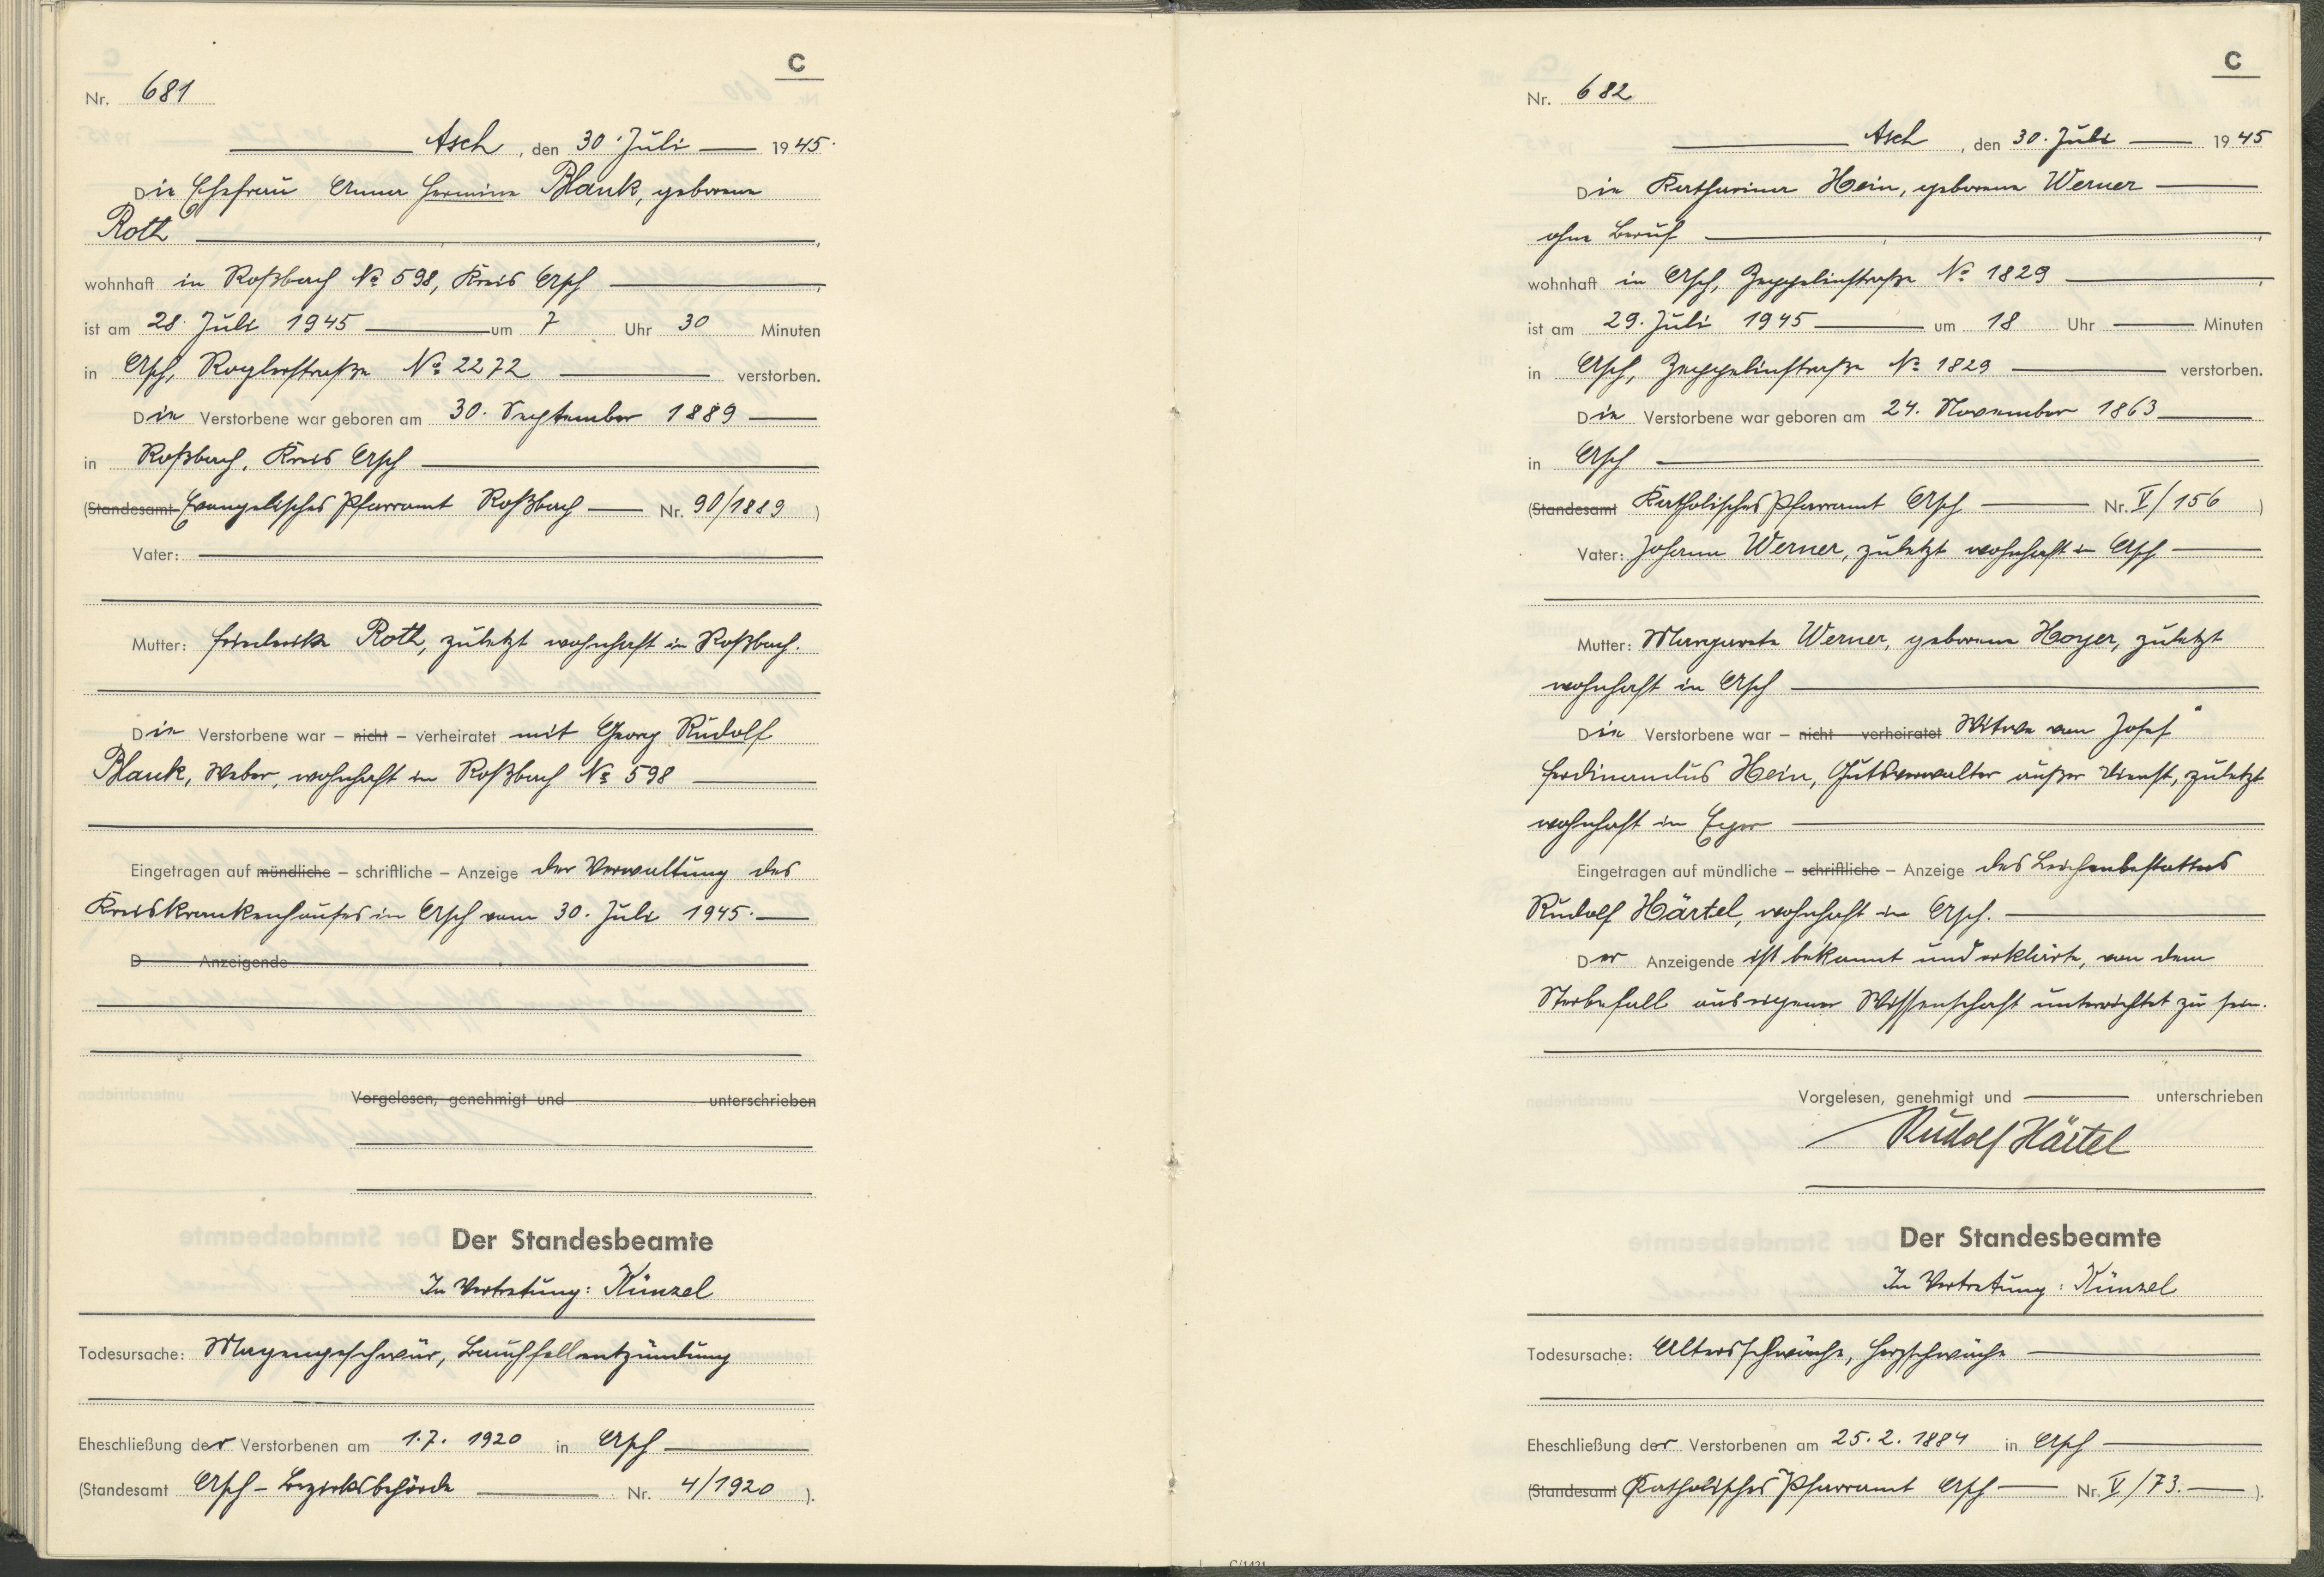 C
Nr. 681
Asch, den 30. Juli 1945.
Die Ehefrau Anna Hermine Blank, geborene
Roth
wohnhaft in Roßbach No 598, Kreis Asch
ist am 28. Juli 1945 um 7 Uhr 30 Minuten
in Asch, Roglerstraße No 2272 verstorben.
Die Verstorbene war geboren am 30. September 1889
in Roßbach, Kreis Asch
(Standesamt Evangelisches Pfarramt Roßbach Nr. 90/1889)
Vater:
Mutter: Friederike Roth, zuletzt wohnhaft in Roßbach.
Die Verstorbene war – nicht – verheiratet mit Georg Rudolf
Blank, Weber, wohnhaft in Roßbach No 598
Eingetragen auf mündliche – schriftliche – Anzeige der Verwaltung des
Kreiskrankenhauses in Asch vom 30. Juli 1945.
D Anzeigende
Vorgelesen, genehmigt und unterschrieben
Der Standesbeamte
In Vertretung: Künzel
Todesursache: Magengeschwür, Bauchfellentzündung
Eheschließung der Verstorbenen am 1.7. 1920 in Asch
(Standesamt Asch – Bezirksbehörde Nr. 4/1920).
C
Nr. 682
Asch, den 30. Juli 1945
Die Katharina Hein, geborene Werner
ohne Beruf
wohnhaft in Asch, Zeppelinstraße No 1829
ist am 29. Juli 1945 um 18 Uhr Minuten
in Asch, Zeppelinstraße No 1829 verstorben.
Die Verstorbene war geboren am 24. November 1863
in Asch
(Standesamt Katholisches Pfarramt Asch Nr. V/156)
Vater: Johann Werner, zuletzt wohnhaft in Asch
Mutter: Margareta Werner, geborene Hoyer, zuletzt
wohnhaft in Asch
Die Verstorbene war – nicht – verheiratet Witwe von Josef
Ferdinandus Hein, Gutsverwalter außer Dienst, zuletzt
wohnhaft in Eger
Eingetragen auf mündliche – schriftliche – Anzeige des Leichenbestatters
Rudolf Härtel, wohnhaft in Asch.
Der Anzeigende ist bekannt und erklärte, von dem
Sterbefall aus eigener Wissenschaft unterrichtet zu sein.
Vorgelesen, genehmigt und unterschrieben
Rudolf Härtel
Der Standesbeamte
In Vertretung: Künzel
Todesursache: Altersschwäche, Herzschwäche
Eheschließung der Verstorbenen am 25. 2. 1884 in Asch
(Standesamt Katholisches Pfarramt Asch Nr. V/73.).